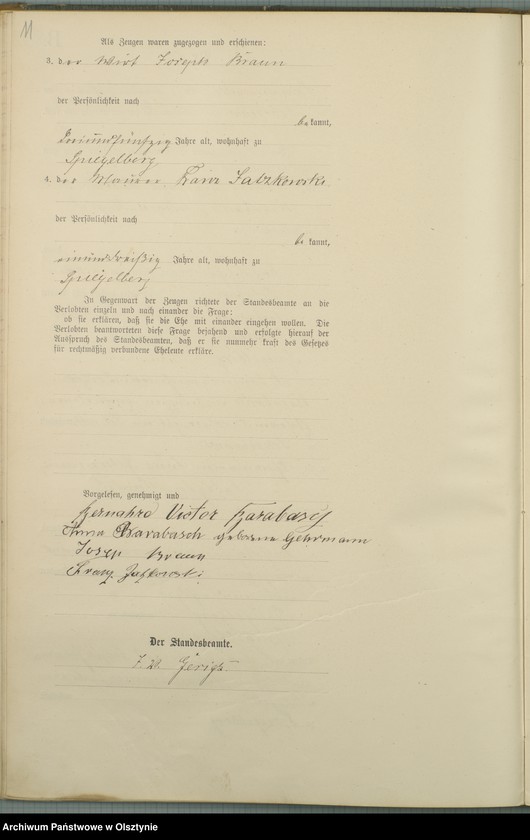 11
Als Zeugen waren zugezogen und erschienen:
3. der Wirt Joseph Braun
der Persönlichkeit nach
be kannt,
dreiundfünfzig Jahre alt, wohnhaft zu
Spiegelberg
4. der Maurer Franz
der Persönlichkeit nach
be kannt,
einunddreißig Jahre alt, wohnhaft zu
Spiegelberg
In Gegenwart der Zeugen richtete der Standesbeamte an die
Verlobten einzeln und nach einander die Frage:
ob sie erklären, daß sie die Ehe mit einander eingehen wollen. Die
Verlobten beantworteten diese Frage bejahend und erfolgte hierauf der
Ausspruch des Standesbeamten, daß er sie nunmehr kraft des Gesetzes
für rechtmäßig verbundene Eheleute erkläre.
Vorgelesen, genehmigt und
Victor
Anna Karabasch geborene Gehrmann
Josep Braun
Franz
Der Standesbeamte.
Archiwum Państwowe w Olsztynie